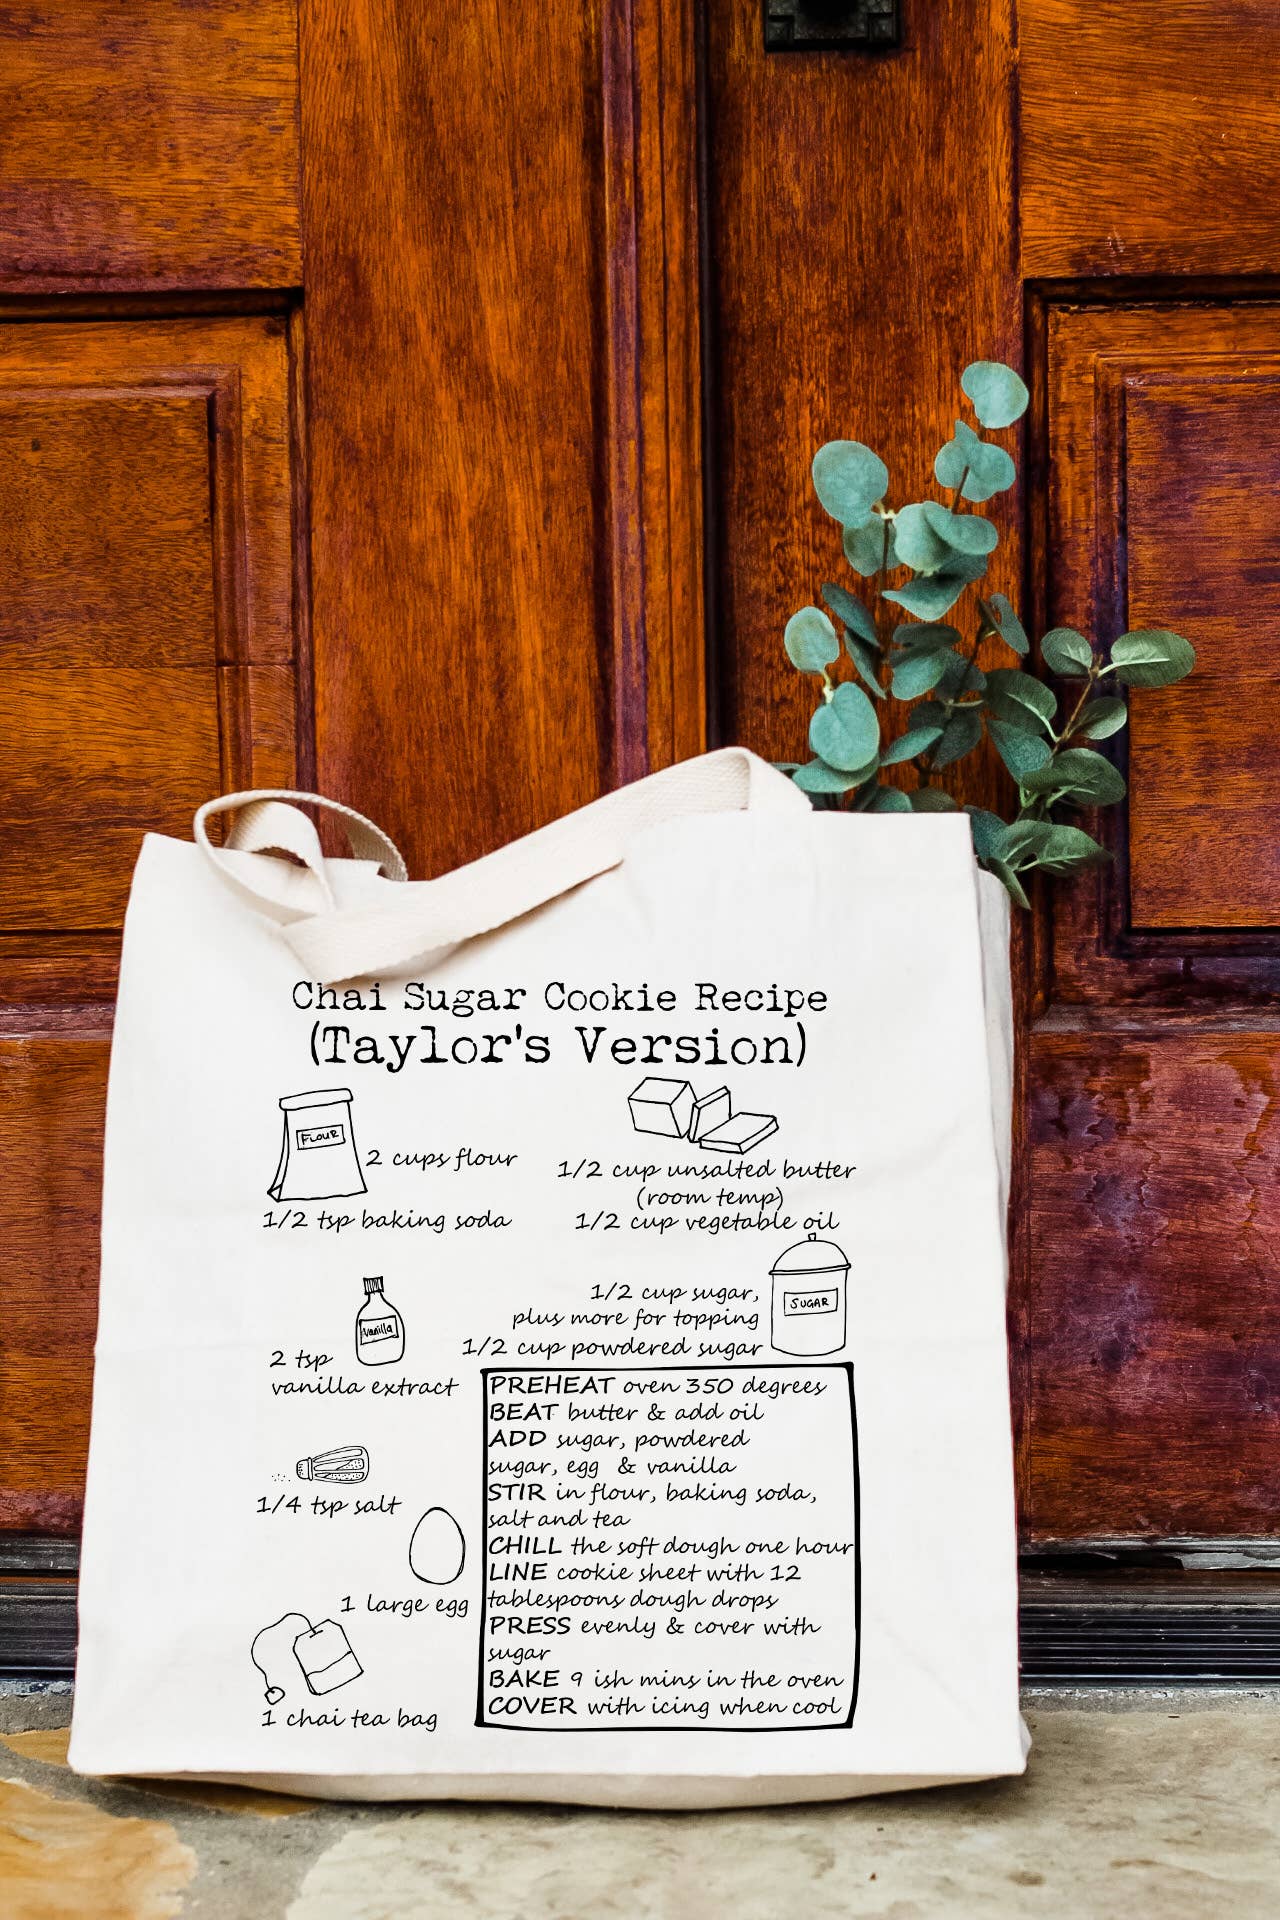 Chai Sugar Cookie Recipe
(Taylor's Version)
FLOUR
2 cups flour
1/2 tsp baking soda
1/2 cup unsalted butter
(room temp)
1/2 cup vegetable oil
SUGAR
1/2 cup sugar,
plus more for topping
1/2 cup powdered sugar
vanilla
2 tsp
vanilla extract
1/4 tsp salt
1 large egg
1 chai tea bag
PREHEAT oven 350 degrees
BEAT butter & add oil
ADD sugar, powdered
sugar, egg & vanilla
STIR in flour, baking soda,
salt and tea
CHILL the soft dough one hour
LINE cookie sheet with 12
tablespoons dough drops
PRESS evenly & cover with
sugar
BAKE 9 ish mins in the oven
COVER with icing when cool